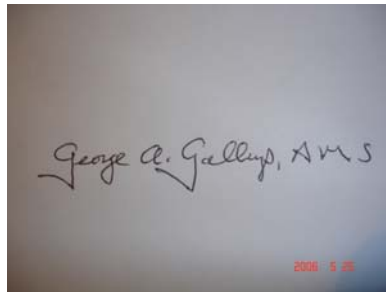 George A. Gallup, AMS
2006 5 25